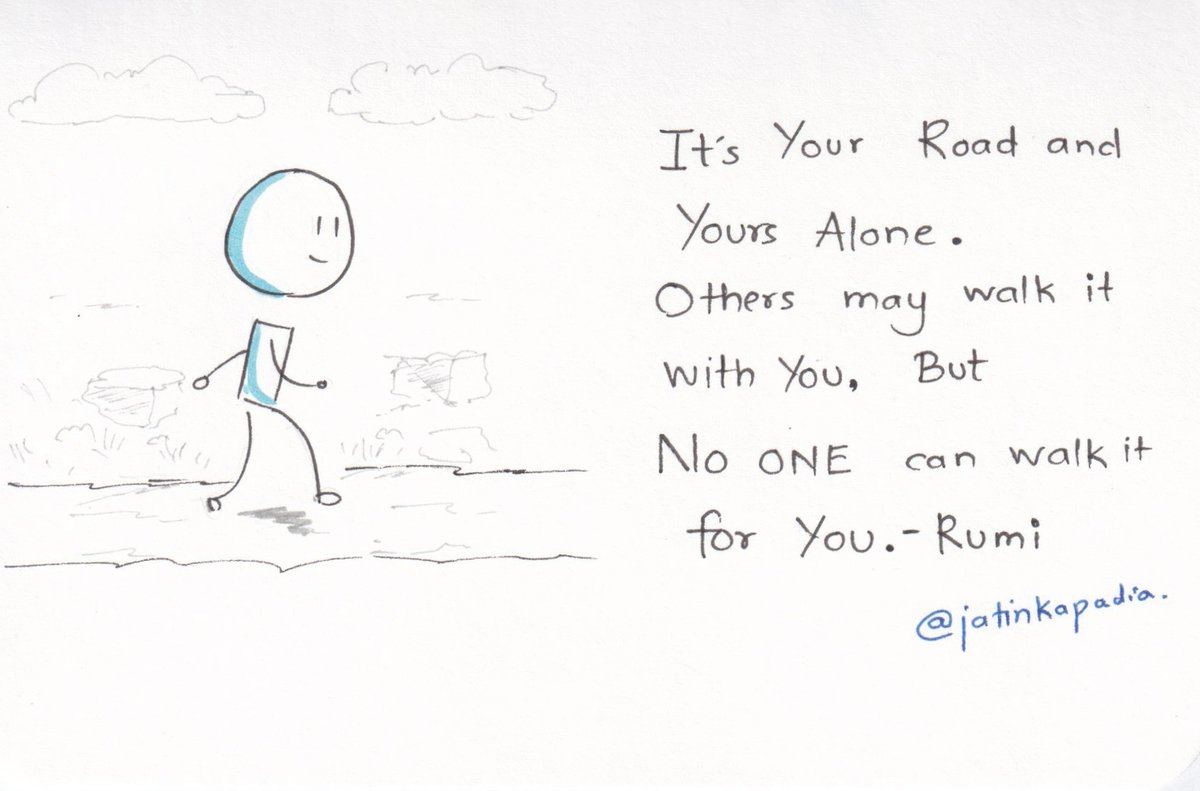 It's Your Road and
Yours Alone.
Others may walk it
with You, But
No ONE can walk it
for You. - Rumi
@jatinkapadia.